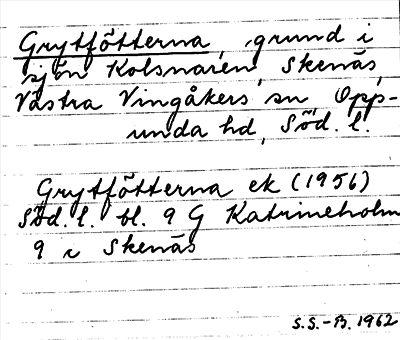 Grytfötterna, grund i
sjön Kolsnaren, Skenäs,
Västra Vingåkers sn Opp-
unda hd, Söd. l.
Grytfötterna ek (1956)
Söd. l. bl. 9 G Katrineholm
9 i Skenäs
S.S.-B. 1962